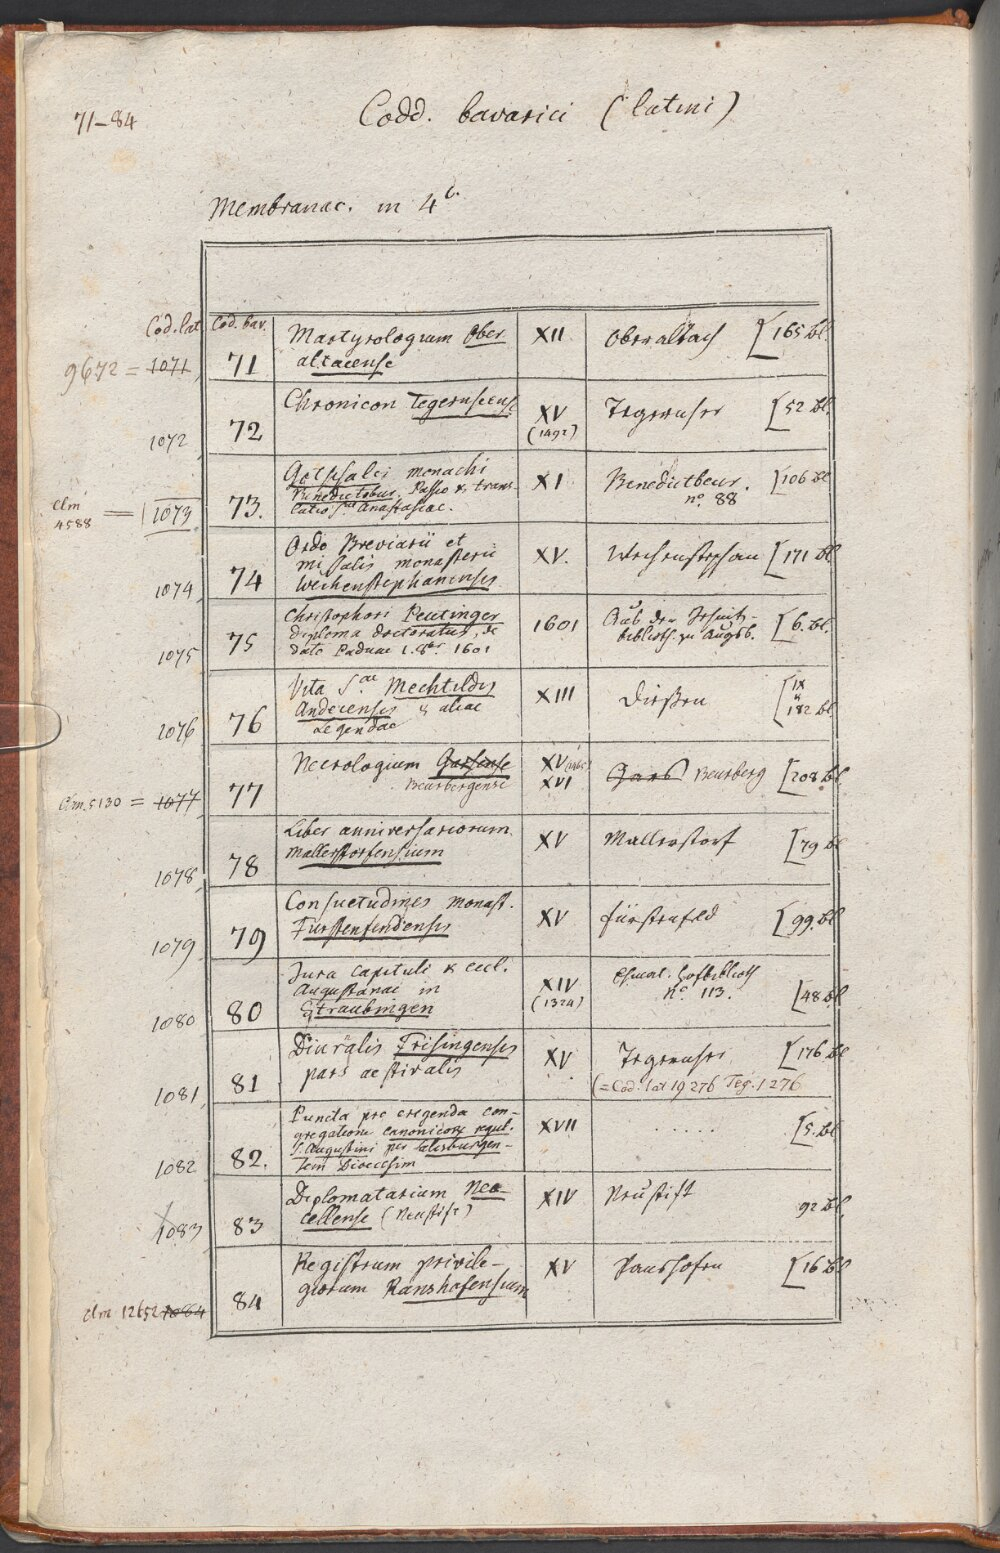 71-84
Codd. bavarici (latini)
Membranac. in 4t.
Cod. lat
Cod. bav.
9672 = 1071
71
Martyrologium Ober
altacense
XII
Oberaltach
[165 bl.
1072
72
Chronicon Tegernseense
XV
(1492)
Tegernsee
[52 bl.
clm
4588 = 1073
73.
Gotschalci monachi
Benedictobur. Passio & trans-
latio Sae Anastasiae.
XI
Benedictbeur.
no. 88
[106 bl
1074
74
Ordo Breviarii et
missalis monasterii
Weihenstephanensis
XV.
Weihenstephan
[171 bl
1075
75
Christophori Peutinger
diploma doctoratus, de
dato Paduae 1. 8br. 1601
1601
Aus der Jesuit-
biblioth. zu Augsb.
[6. bl.
1076
76
Vita Sae. Mechtildis
Andecensis & aliae
Legendae
XIII
Dießen
[IX
u
182 bl
Clm. 5130 = 1077
77
Necrologium Garsense
Beurbergense
XV
XVI
Gars Beurberg
[208 bl
1078
78
Liber anniversariorum
Mallerstorfensium
XV
Mallerstorf
[79 bl
1079
79
Consuetudines monast.
Fürstenfendensis
XV
Fürstenfeld
[99. bl
1080
80
Jura capituli & eccl.
Augustanae in
Straubingen
XIV
(1324)
Churat. Hofbiblioth
No. 113.
[48 bl
1081
81
Diurnalis Frisingensis
pars aestivalis
XV
Tegernsee
[176 bl
(=Cod. lat 19276 Teg. 1276
1082
82.
Puncta pro erigenda con-
gregatione canonicor. regul.
S. Augustini per Salisburgen-
sem Dioecesim
XVII
. . . . .
[5. bl
1083
83
Diplomatarium Neo-
cellense (Neustift)
XIV
Neustift
92 bl.
clm 12652 1084
84
Registrum privile-
giorum Ranshofensium
XV
Ranshofen
[16 bl